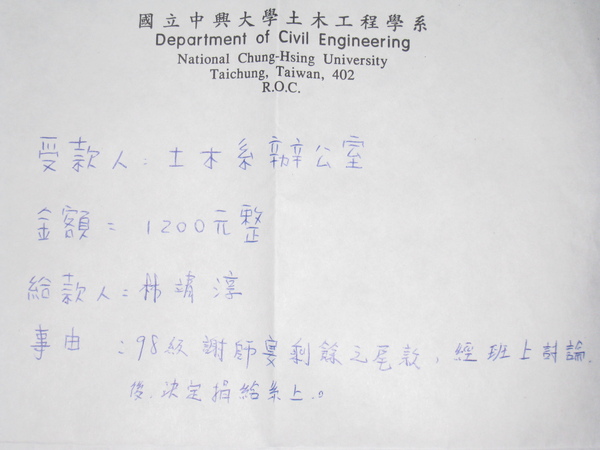 國立中興大學土木工程學系
Department of Civil Engineering
National Chung-Hsing University
Taichung, Taiwan, 402
R.O.C.
受款人：土木系辦公室
金額：1200元整
給款人：林靖淳
事由：98級謝師宴剩餘之尾款，經班上討論
後，決定捐給系上。